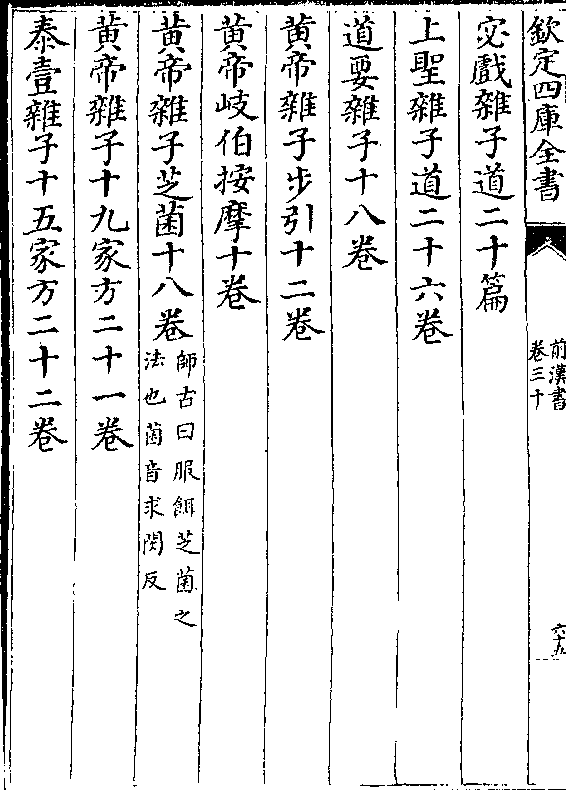 欽定四庫全書
前漢書
卷三十
六十九
宓戲雜子道二十篇
上聖雜子道二十六卷
道要雜子十八卷
黄帝雜子步引十二卷
黄帝岐伯按摩十卷
黄帝雜子芝菌十八卷師古曰服餌芝菌之
法也菌音求閔反
黄帝雜子十九家方二十一卷
泰壹雜子十五家方二十二卷